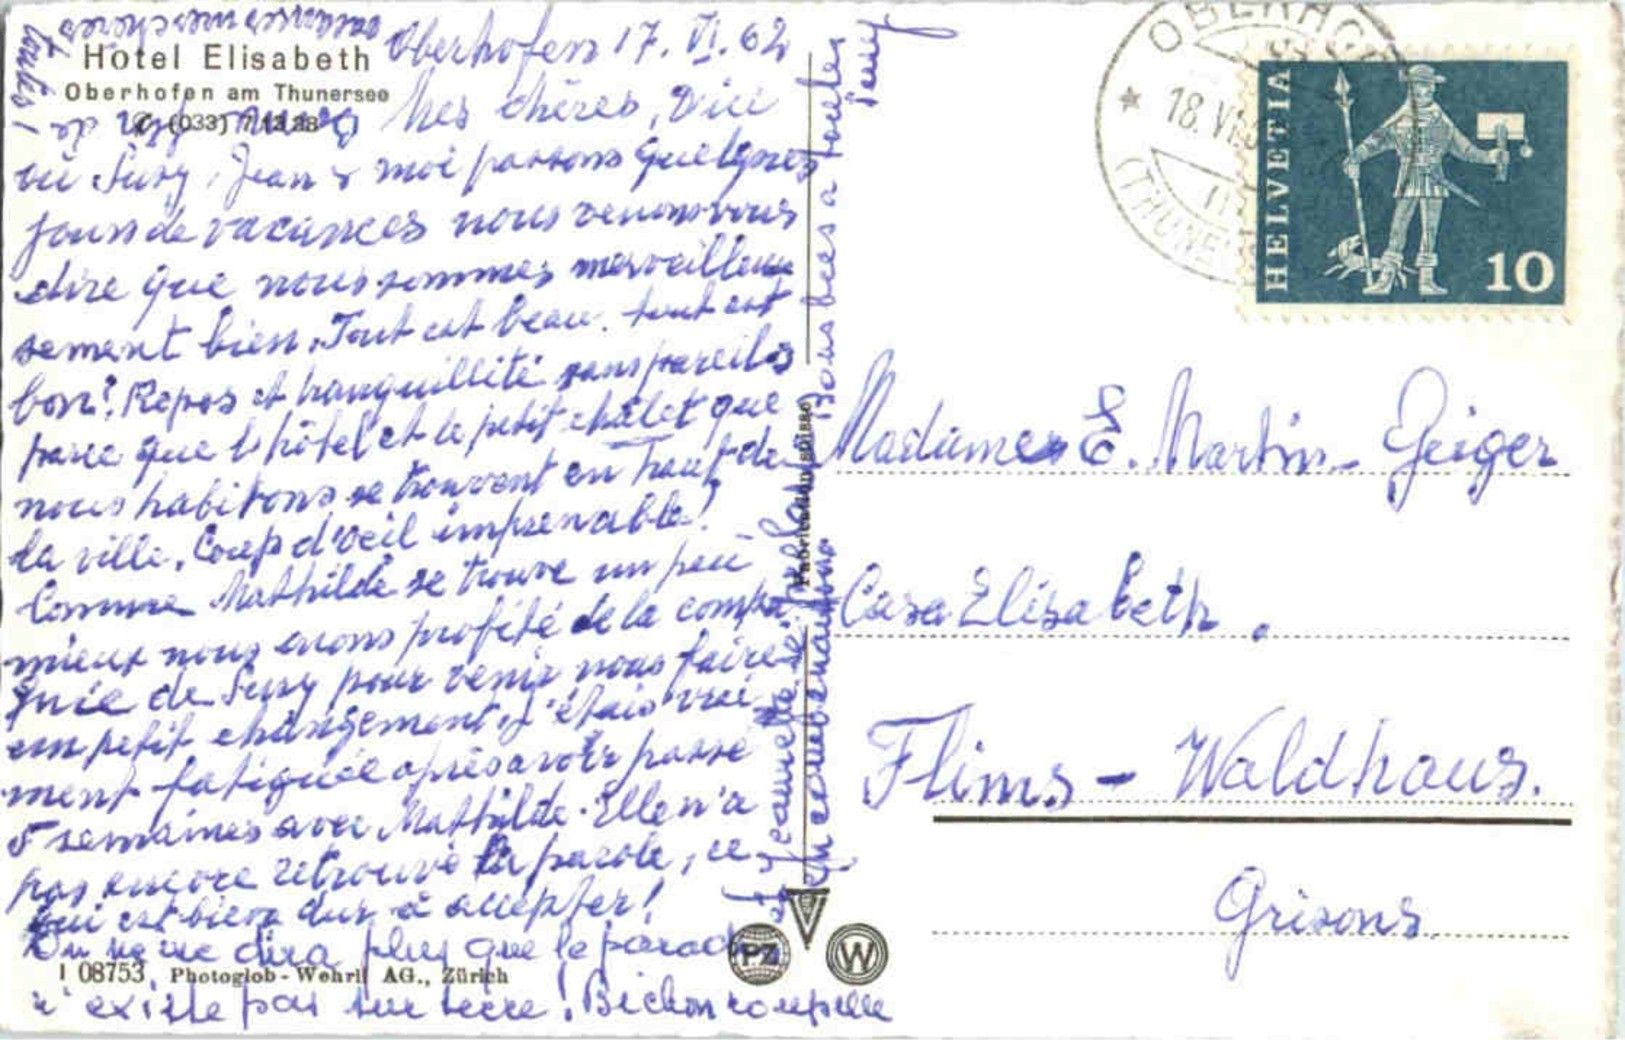 Hotel Elisabeth
Oberhofen am Thunersee
(033) 7 13 28
Oberhofen 17. VI. 62
Mes chères, D'ici
où Susy, Jean & moi passons quelques
jours de vacances nous venons vous
dire que nous sommes merveilleu
sement bien. Tout est beau. tout est
bon! Repos et tranquillité sans pareils
parce que l'hôtel et le petit châlet que
nous habitons se trouvent en haut de
la ville. Coup d'oeil imprenable!
Comme Mathilde se trouve un peu
mieux nous avons profité de la compa
gnie de Susy pour venir nous faire
un petit changement. J'étais vrai
ment fatiguée après avoir passé
5 semaines avec Mathilde. Elle n'a
pas encore retrouvé la parole, ce
qui est bien dur à accepter!
On ne me dira plus que le paradis
n'existe pas sur terre! Bichon
Bons baisers à toutes
Jenny
toutes!
1 08753 Photoglob-Wehrli AG., Zürich
PZ
W
OBERHOFEN
18. VI.
(THUNERSEE)
HELVETIA
10
Madames E. Martin-Geiger
Casa Elisabeth.
Flims - Waldhaus.
Grisons